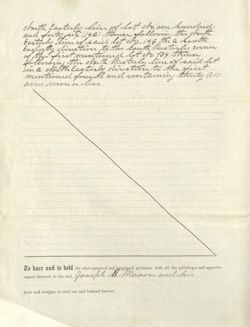 North Easterly line of lot No one hundred
and forty six (146) thence following the North
Easterly line of said lot No. 146 in a South
easterly direction to the South Westerly corner
of the first mentioned lot No 139 thence
following the North Westerly line of said lot
in a North Easterly direction to the first
mentioned bound and containing thirty
acres more or less
To have and to hold the aforegranted and bargained premises, with all the privileges and appurte-
nances thereof, to the said Joseph B. Mason and his
heirs and assigns, to their use and behoof forever.